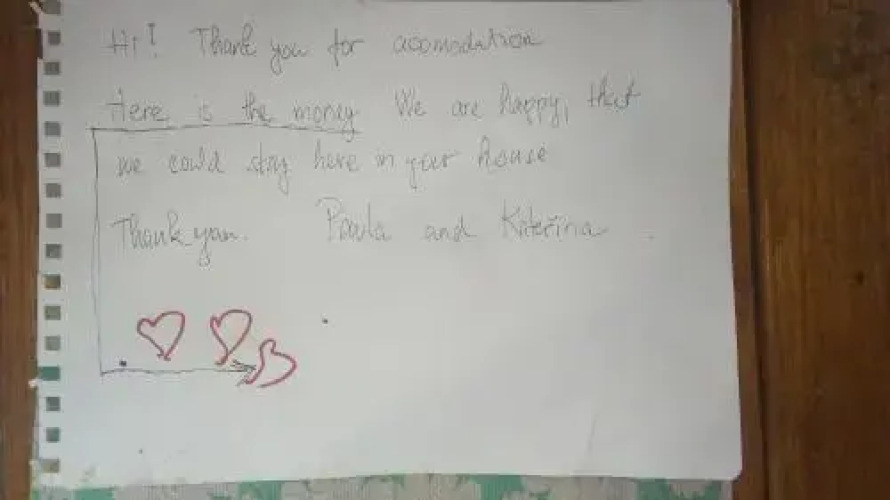 Hi! Thank you for acomodation
Here is the money We are happy, that
we could stay here in your house
Thank you. Paula and Kateřina